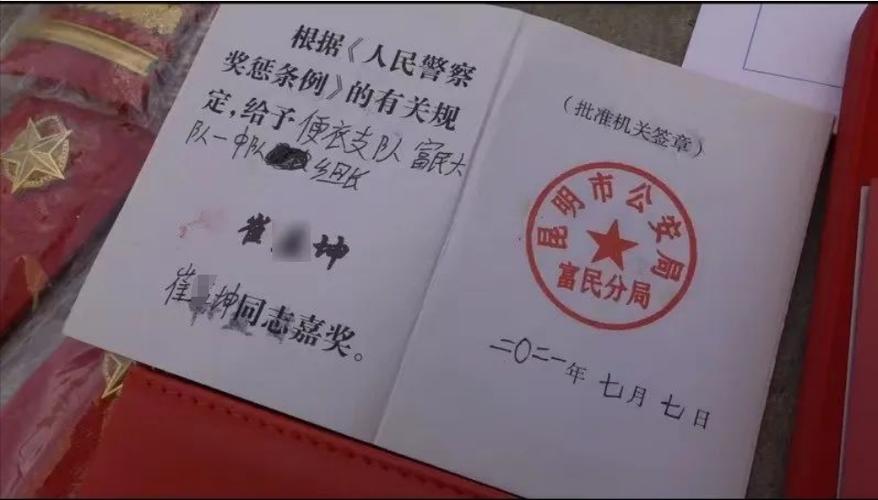 根据《人民警察
奖惩条例》的有关规
定，给予便衣支队富民大
队一中队组长
崔坤
崔坤同志嘉奖。
（批准机关签章）
昆明市公安局
富民分局
二〇二一年七月七日